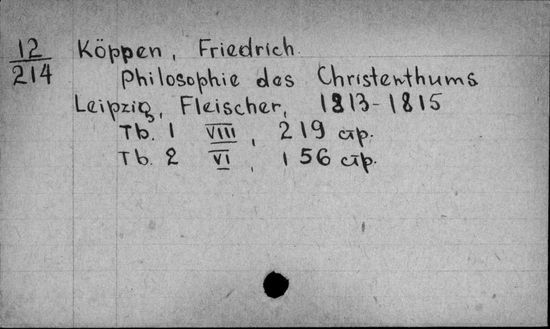 12
214
Köppen, Friedrich.
Philosophie des Christenthums
Leipzig, Fleischer, 1813-1815
Tb. 1 VIII, 219 стр.
Tb. 2 VI, 156 стр.